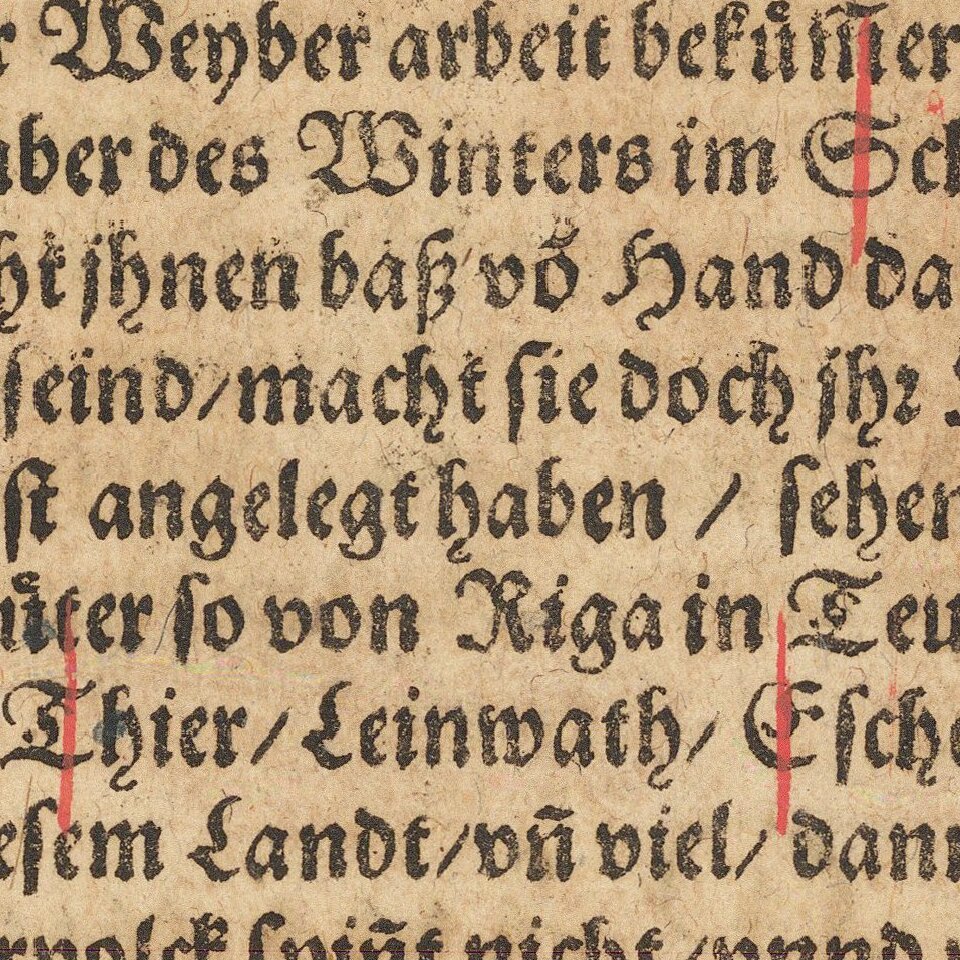 r Weyber arbeit bekuͤm̃er
aber des Winters im Sch
ht jhnen baß võ Hand da
ſeind/macht ſie doch jhꝛ
ſt angelegt haben / ſehen
uͤter ſo von Riga in Teu
Thier/Leinwath/ Eſche
eſem Landt/vñ viel/ dann
rvolck ſpiñt nicht /vnnd